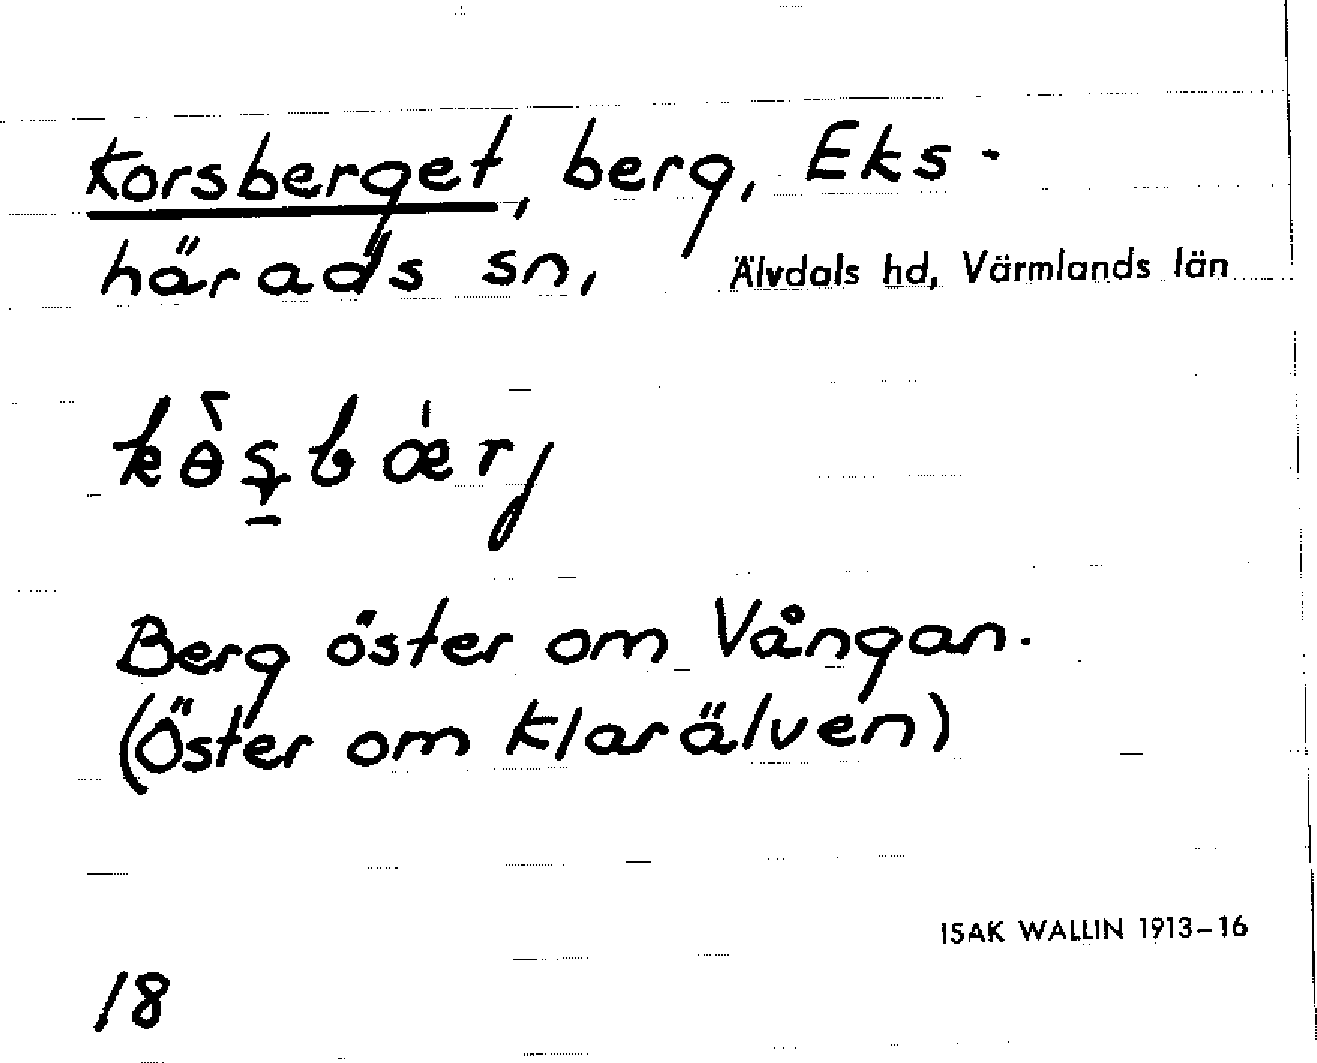 Korsberget, berg, Eks-
härads sn, Älvdals hd, Värmlands län
kɵ̀ʂbæ̀rj
Berg öster om Vångan.
(Öster om Klarälven)
ISAK WALLIN 1913–16
18